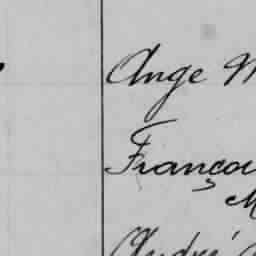 Ange M
Françoi
M
André